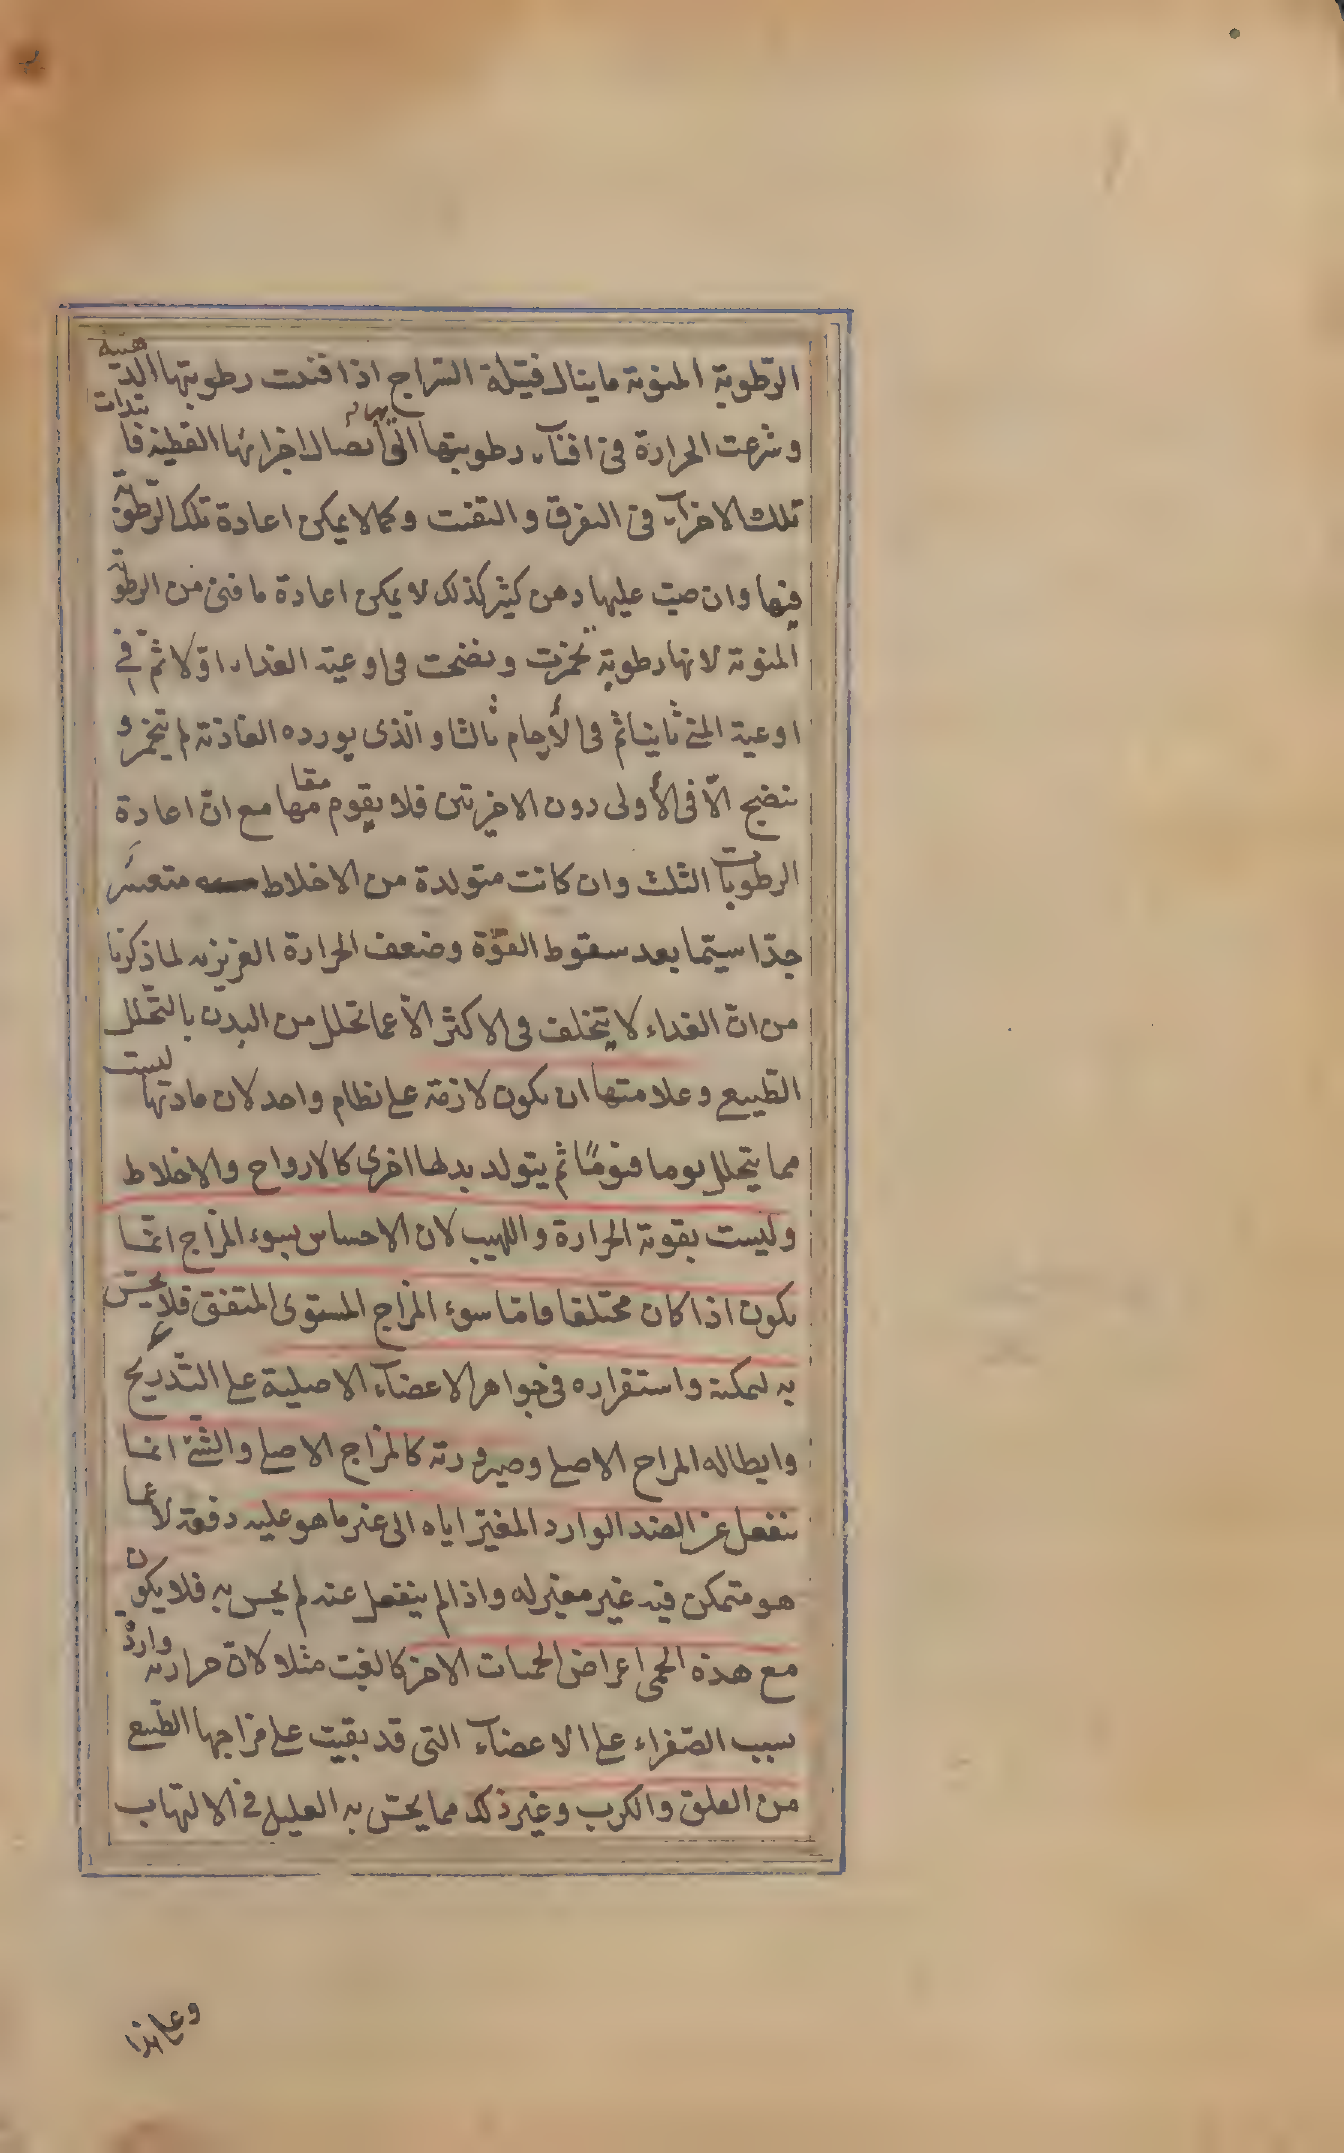 الرّطوبة المنوية ما ينال فتيلة السّراج اذا فنيت رطوبتها الدهنية
وشرعت الحرارة فى افناء رطوبتها التى بها اتصال اجزائها القطنية فابتدات
تلك الاجزاء فى التفرق والتفتت وكما لا يمكن اعادة تلك الرّطوبة
فيها وان صبت عليها دهن كثير كذلك لا يمكن اعادة ما فنى من الرطوبة
المنوية لانها رطوبة تخمرت ونضجت فى اوعية الغذاء اوّلا ثمّ فى
اوعية المنى ثانيا ثم فى الأرحام ثالثا والّذى يورده الغاذية لم يتخمر و
ينضج الّا فى الأولى دون الاخيرتين فلا يقوم مقامها مع انّ اعادة
الرطوبات الثلث وان كانت متولدة من الاخلاط متعسّر
جدّا سيّما بعد سقوط القوّة وضعف الحرارة الغريزية لما ذكرنا
من انّ الغذاء لا يتخلف فى الاكثر الّا عما تحلل من البدن بالتّحلل
الطّبيعى وعلامتها ان يكون لازمة على نظام واحد لان مادتها ليست
مما يتحلل يوما فيومًا ثم يتولد بدلها اخرى كالارواح والاخلاط
وليست بقوية الحرارة واللهيب لان الاحساس بسوء المزاج انّما
يكون اذا كان مختلفا وامّا سوء المزاج المستوى المتفق فلا يحسّ
به لتمكنه واستقراره فى جواهر الاعضاء الاصلية على التّدريج
وابطاله المزاج الاصلى وصيرورته كالمزاج الاصلى والشّئ انما
ينفعل عن الضد الوارد المغيّر اياه الى غير ما هو عليه دفعة لا عما
هو متمكن فيه غير مغير له واذا لم ينفعل عنه لم يحس به فلا يكون
مع هذه الحمى اعراض الحميات الاخر كالغب مثلا لانّ حرارته واردة
بسبب الصّفراء على الاعضاء التى قد بقيت على مزاجها الطّبيعى
من القلق والكرب وغير ذلك مما يحسّ به العليل فى الالتهاب
وعلى هذا